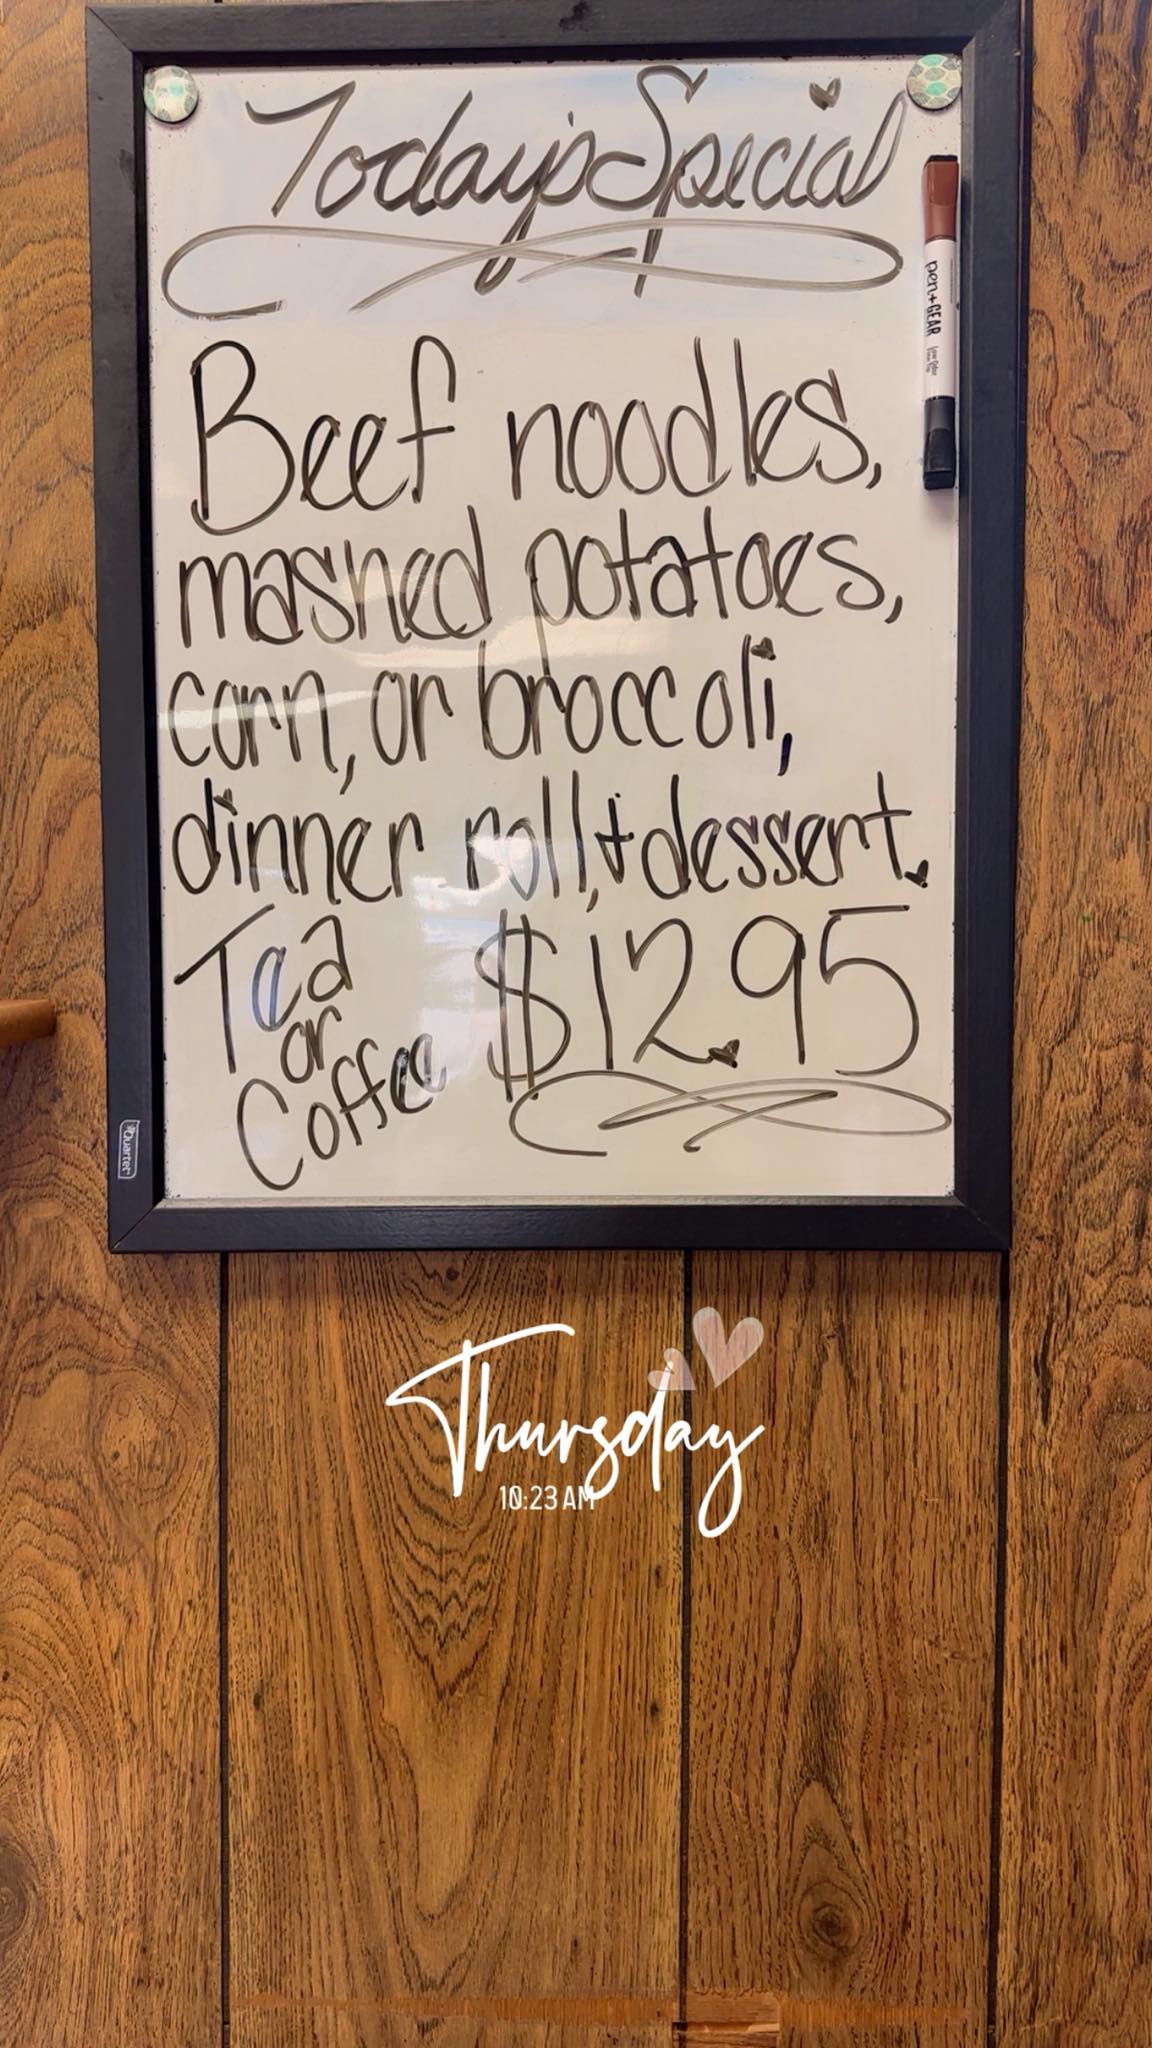 Today's Special
pen+GEAR
Beef noodles,
mashed potatoes,
corn, or broccoli,
dinner roll, + dessert.
Tea
or
Coffee
$12.95
Quartet
Thursday
10:23 AM